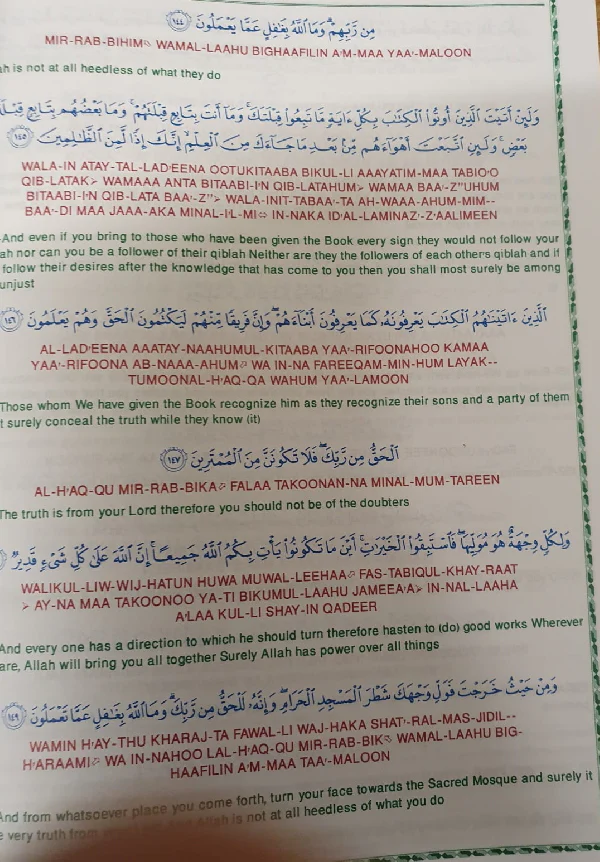 مِن رَّبِّهِمْ ۗ وَمَا اللَّهُ بِغَافِلٍ عَمَّا يَعْمَلُونَ ﴿١٤٤﴾
MIR-RAB-BIHIM WAMAL-LAAHU BIGHAAFILIN A'M-MAA YAA'-MALOON
ah is not at all heedless of what they do
وَلَئِنْ أَتَيْتَ الَّذِينَ أُوتُوا الْكِتَابَ بِكُلِّ ءَايَةٍ مَّا تَبِعُوا قِبْلَتَكَ ۚ وَمَا أَنتَ بِتَابِعٍ قِبْلَتَهُمْ ۚ وَمَا بَعْضُهُم بِتَابِعٍ قِبْلَةَ
بَعْضٍ ۚ وَلَئِنِ اتَّبَعْتَ أَهْوَاءَهُم مِّن بَعْدِ مَا جَاءَكَ مِنَ الْعِلْمِ ۙ إِنَّكَ إِذًا لَّمِنَ الظَّالِمِينَ ﴿١٤٥﴾
WALA-IN ATAY-TAL-LAD'EENA OOTUKITAABA BIKUL-LI AAAYATIM-MAA TABIO'O
QIB-LATAK> WAMAAA ANTA BITAABI-I'N QIB-LATAHUM> WAMAA BAA'-Z"UHUM
BITAABI-I'N QIB-LATA BAA'-Z"> WALA-INIT-TABAA'-TA AH-WAAA-AHUM-MIM--
BAA'-DI MAA JAAA-AKA MINAL-I'L-MI IN-NAKA ID'AL-LAMINAZ'-Z'AALIMEEN
And even if you bring to those who have been given the Book every sign they would not follow your
ah nor can you be a follower of their qiblah Neither are they the followers of each others qiblah and if
follow their desires after the knowledge that has come to you then you shall most surely be among
unjust
الَّذِينَ ءَاتَيْنَاهُمُ الْكِتَابَ يَعْرِفُونَهُ كَمَا يَعْرِفُونَ أَبْنَاءَهُمْ ۖ وَإِنَّ فَرِيقًا مِّنْهُمْ لَيَكْتُمُونَ الْحَقَّ وَهُمْ يَعْلَمُونَ ﴿١٤٦﴾
AL-LAD'EENA AAATAY-NAAHUMUL-KITAABA YAA'-RIFOONAHOO KAMAA
YAA'-RIFOONA AB-NAAA-AHUM WA IN-NA FAREEQAM-MIN-HUM LAYAK--
TUMOONAL-H'AQ-QA WAHUM YAA'-LAMOON
Those whom We have given the Book recognize him as they recognize their sons and a party of them
t surely conceal the truth while they know (it)
الْحَقُّ مِن رَّبِّكَ ۖ فَلَا تَكُونَنَّ مِنَ الْمُمْتَرِينَ ﴿١٤٧﴾
AL-H'AQ-QU MIR-RAB-BIKA FALAA TAKOONAN-NA MINAL-MUM-TAREEN
The truth is from your Lord therefore you should not be of the doubters
وَلِكُلٍّ وِجْهَةٌ هُوَ مُوَلِّيهَا ۖ فَاسْتَبِقُوا الْخَيْرَاتِ ۚ أَيْنَ مَا تَكُونُوا يَأْتِ بِكُمُ اللَّهُ جَمِيعًا ۚ إِنَّ اللَّهَ عَلَىٰ كُلِّ شَيْءٍ قَدِيرٌ
WALIKUL-LIW-WIJ-HATUN HUWA MUWAL-LEEHAA FAS-TABIQUL-KHAY-RAAT
> AY-NA MAA TAKOONOO YA-TI BIKUMUL-LAAHU JAMEEA'A> IN-NAL-LAAHA
A'LAA KUL-LI SHAY-IN QADEER
And every one has a direction to which he should turn therefore hasten to (do) good works Wherever
are, Allah will bring you all together Surely Allah has power over all things
وَمِنْ حَيْثُ خَرَجْتَ فَوَلِّ وَجْهَكَ شَطْرَ الْمَسْجِدِ الْحَرَامِ ۖ وَإِنَّهُ لَلْحَقُّ مِن رَّبِّكَ ۗ وَمَا اللَّهُ بِغَافِلٍ عَمَّا تَعْمَلُونَ ﴿١٤٩﴾
WAMIN H'AY-THU KHARAJ-TA FAWAL-LI WAJ-HAKA SHAT'-RAL-MAS-JIDIL--
H'ARAAMI WA IN-NAHOO LAL-H'AQ-QU MIR-RAB-BIK WAMAL-LAAHU BIG-
HAAFILIN A'M-MAA TAA'-MALOON
And from whatsoever place you come forth, turn your face towards the Sacred Mosque and surely it
e very truth from Allah is not at all heedless of what you do